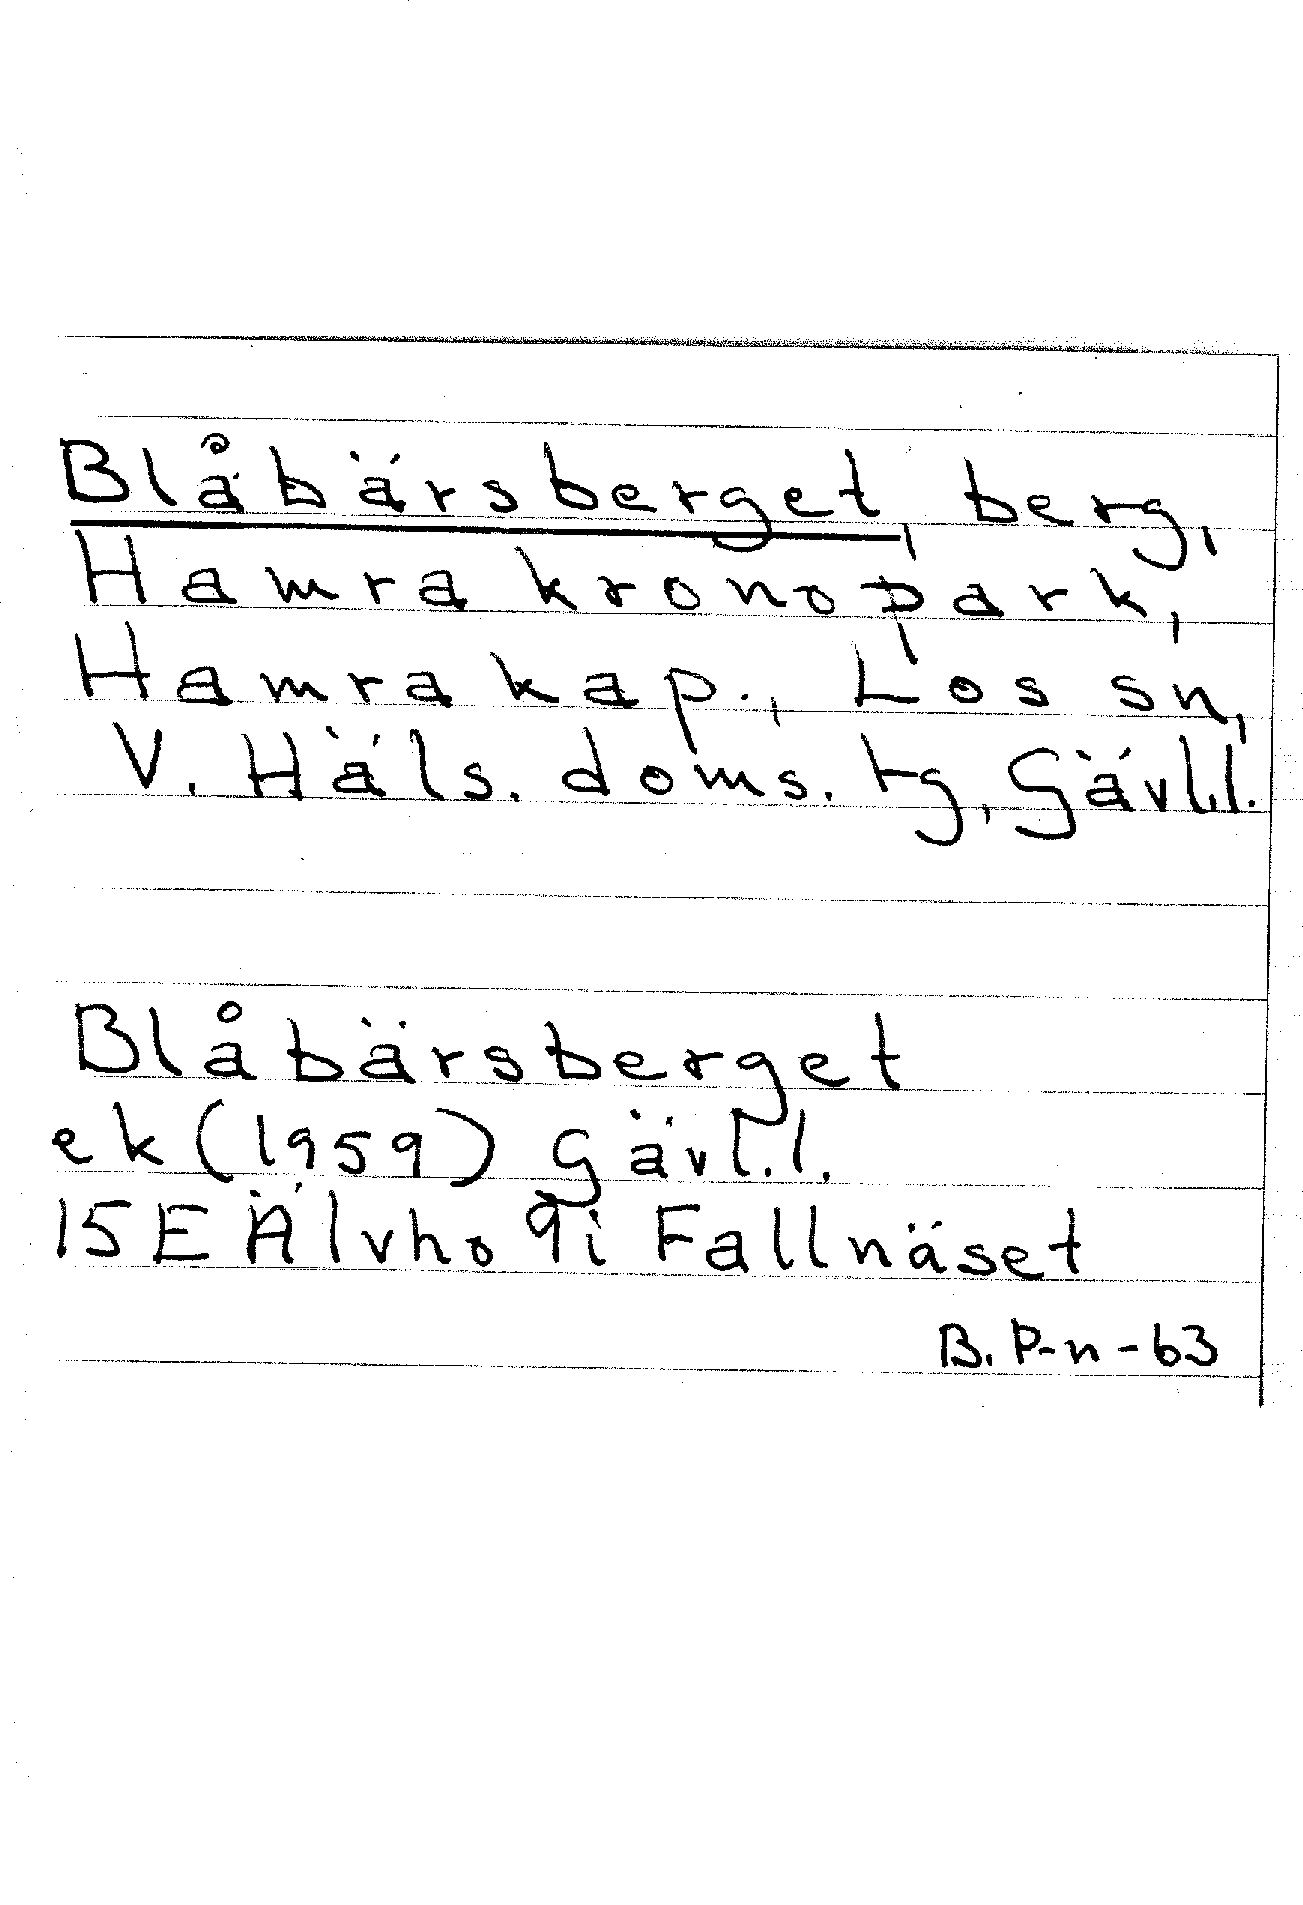 Blåbärsberget, berg,
Hamra kronopark,
Hamra kap., Los sn,
V. Häls. doms. tg, Gävl.l.
Blåbärsberget
ek (1959) Gävl.l.
15E Älvho 9i Fallnäset
B. P-n-63